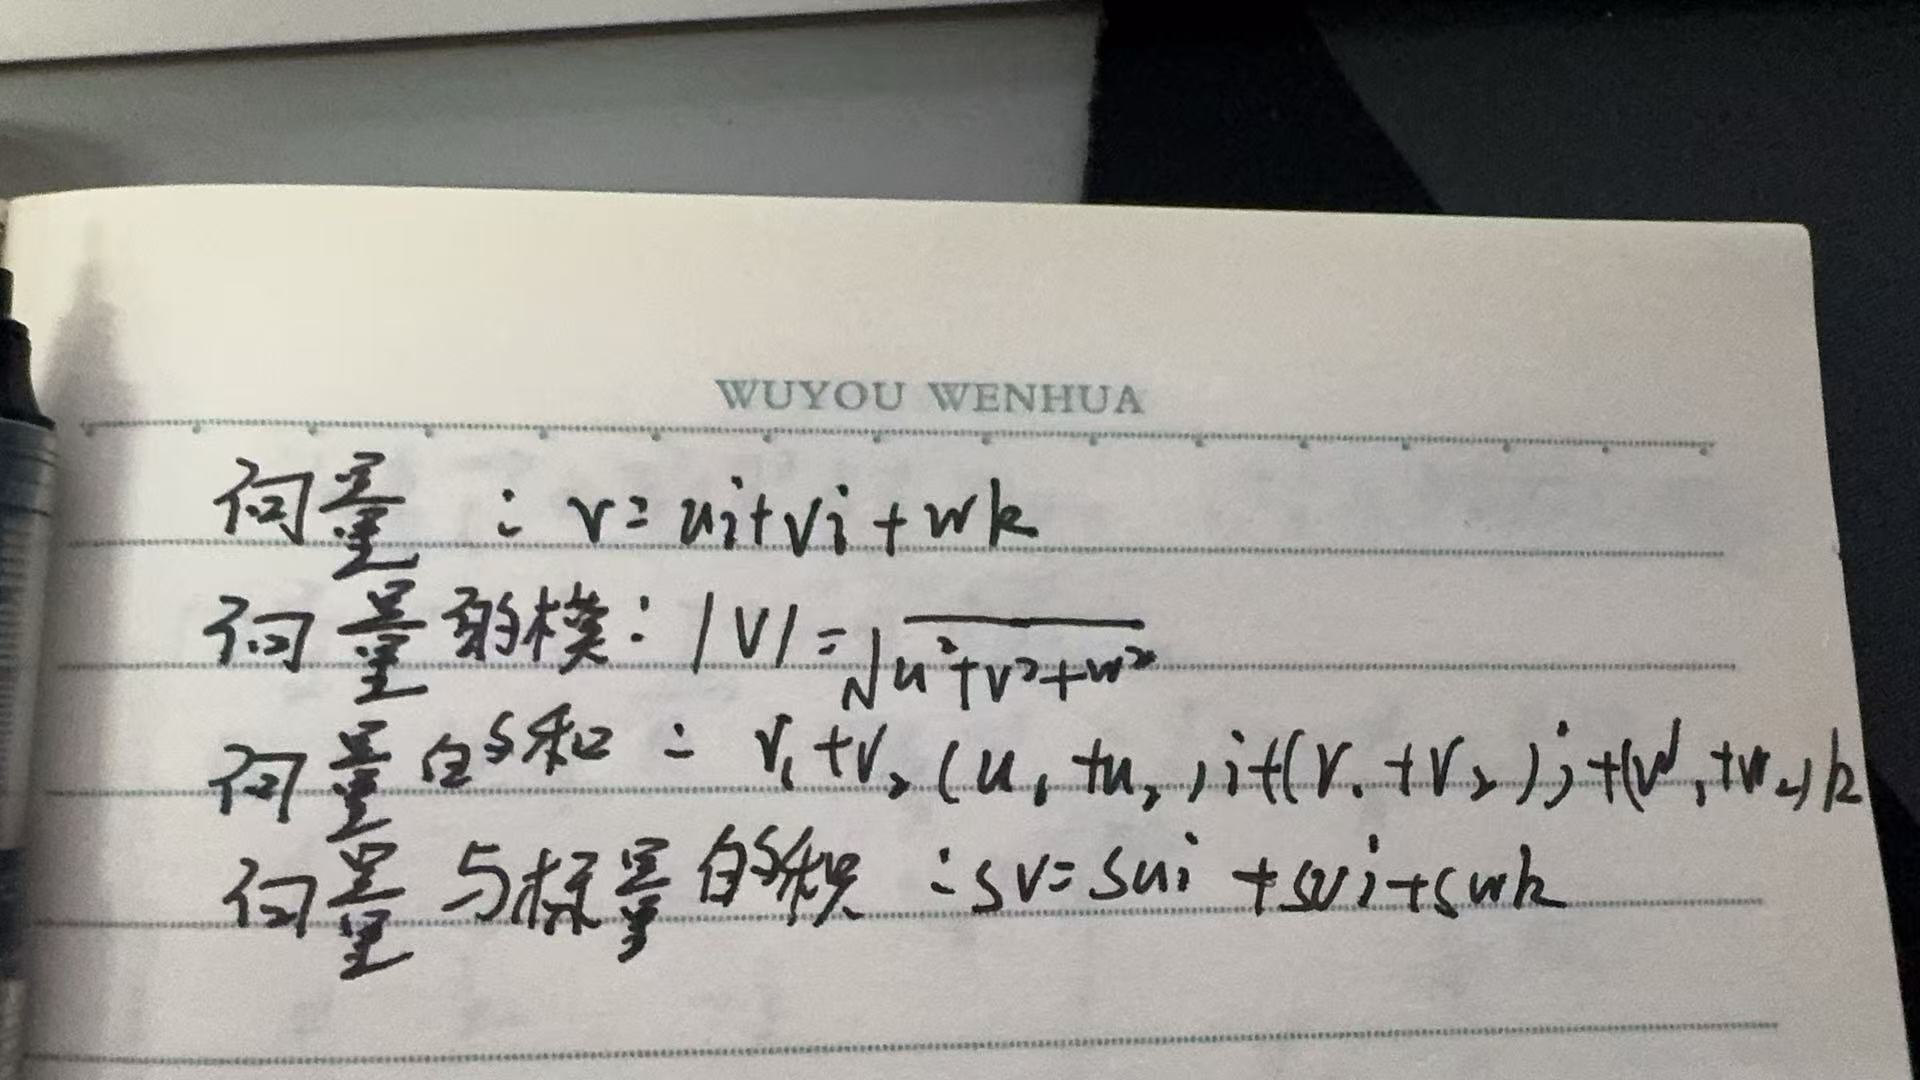 WUYOU WENHUA
向量：v=ui+vi+wk
向量的模：|V|=√u²+v²+w²
向量的和：v₁+v₂(u₁+u₂)i+(v₁+v₂)j+(w₁+w₂)k
向量与标量的积：sv=sui+svi+swk